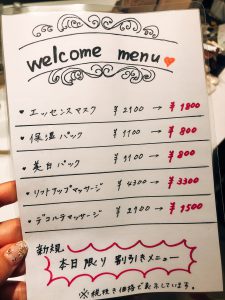 welcome menu
・エッセンスマスク ¥2100 → ¥1800
・保湿パック ¥1100 → ¥800
・美白パック ¥1100 → ¥800
・リフトアップマッサージ ¥4300 → ¥3300
・デコルテマッサージ ¥2900 → ¥1500
新規
本日限り 割引きメニュー
※税抜き価格で表示しています。